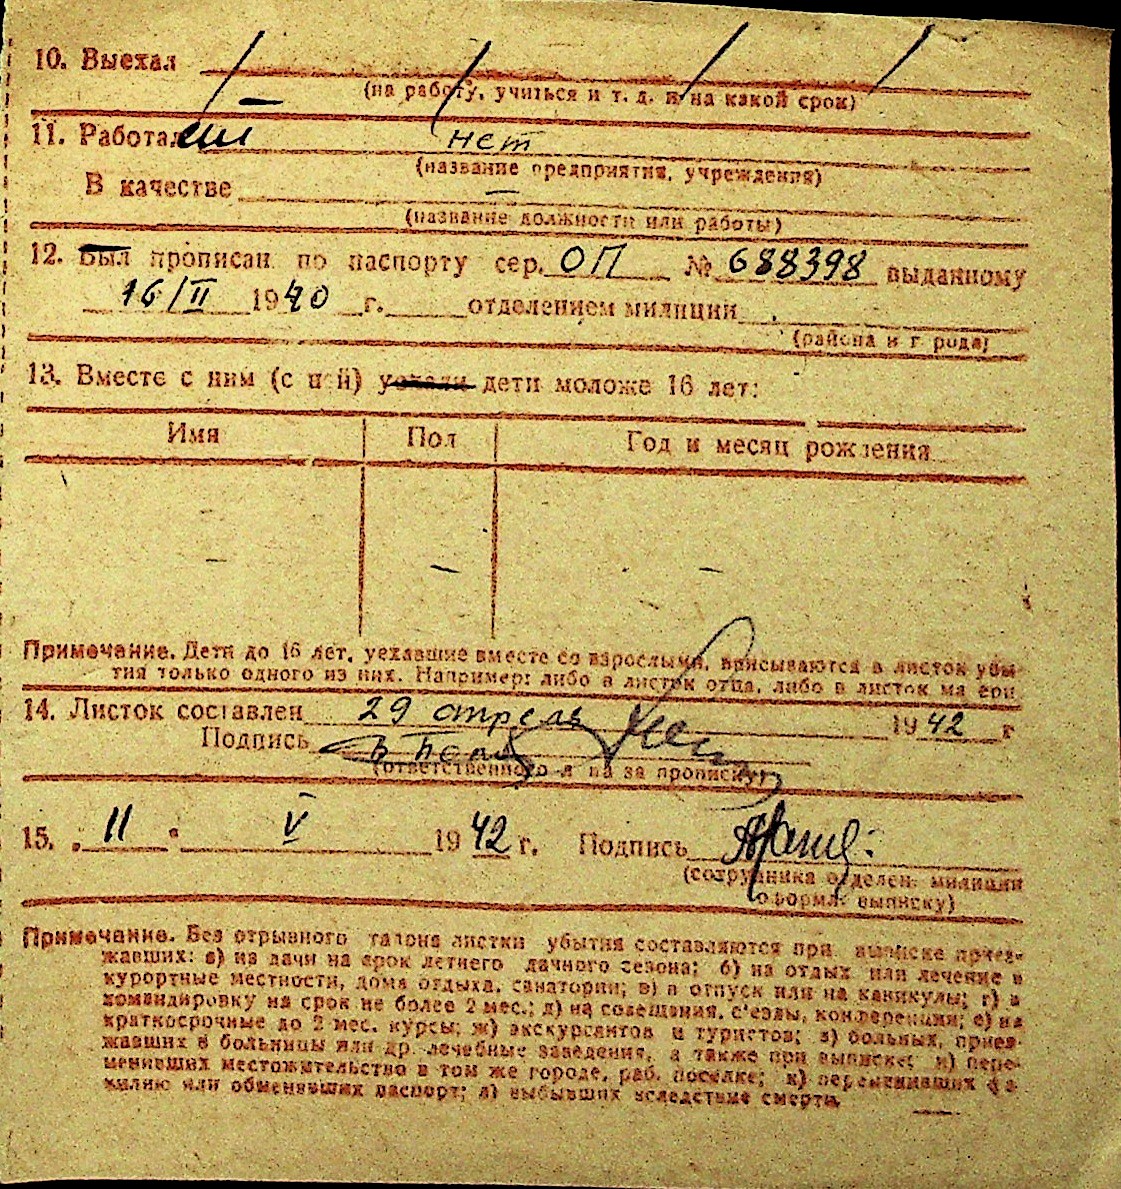 10. Выехал
(на работу, учиться и т. д. и на какой срок)
11. Работал нет
(название предприятия, учреждения)
В качестве —
(название должности или работы)
12. Был прописан по паспорту сер. ОП № 688398 выданному
16/II 1940 г. отделением милиции
(района и города)
13. Вместе с ним (с ней) уехали дети моложе 16 лет:
Имя Пол Год и месяц рождения
— — —
Примечание. Дети до 16 лет, уехавшие вместе со взрослыми, вписываются в листок убы-
тия только одного из них. Например: либо в листок отца, либо в листок матери.
14. Листок составлен 29 апреля 1942 г
Подпись
(ответственного лица за прописку)
15. „11" V 1942 г. Подпись
(сотрудника отделен. милиции
оформл. выписку)
Примечание. Без отрывного талона листки убытия составляются при выписке приез-
жавших: а) на дачи на срок летнего дачного сезона; б) на отдых или лечение в
курортные местности, дома отдыха, санатории; в) в отпуск или на каникулы; г) в
командировку на срок не более 2 мес.; д) на совещания, с'езды, конференции; е) на
краткосрочные до 2 мес. курсы; ж) экскурсантов и туристов; з) больных, приез-
жавших в больницы или др. лечебные заведения, а также при выписке: и) пере-
менивших местожительство в том же городе, раб. поселке; к) переменивших фа-
милию или обменявших паспорт; л) выбывших вследствие смерти.